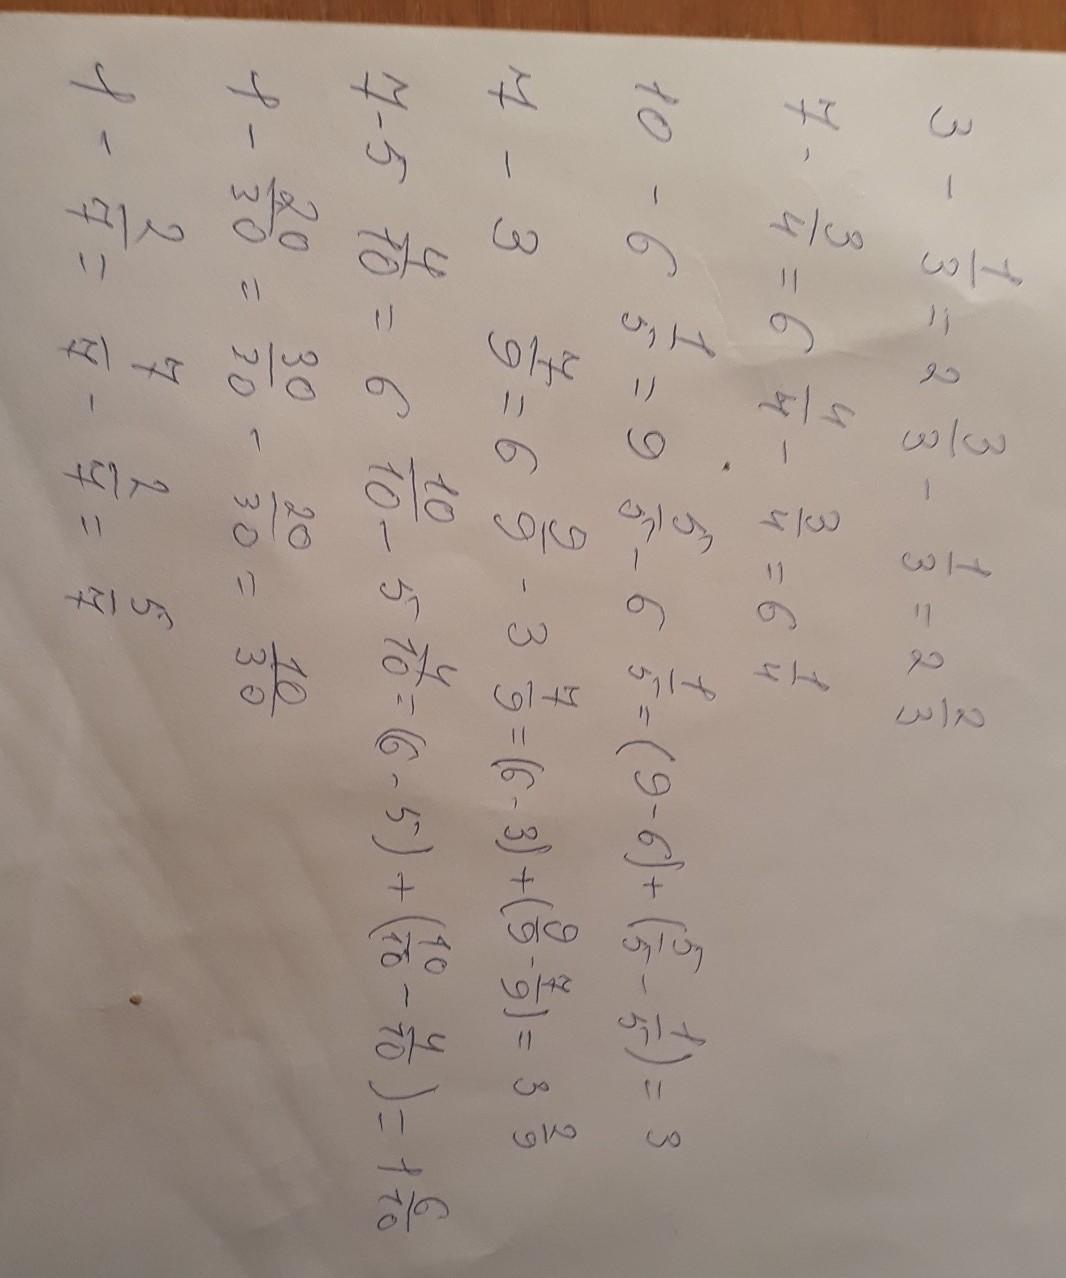 3 - 1/3 = 2 3/3 - 1/3 = 2 2/3
7 - 3/4 = 6 4/4 - 3/4 = 6 1/4
10 - 6 1/5 = 9 5/5 - 6 1/5 = (9 - 6) + (5/5 - 1/5) = 3
7 - 3 7/9 = 6 9/9 - 3 7/9 = (6 - 3) + (9/9 - 7/9) = 3 2/9
7 - 5 4/10 = 6 10/10 - 5 4/10 = (6 - 5) + (10/10 - 4/10) = 1 6/10
1 - 20/30 = 30/30 - 20/30 = 10/30
1 - 2/7 = 7/7 - 2/7 = 5/7